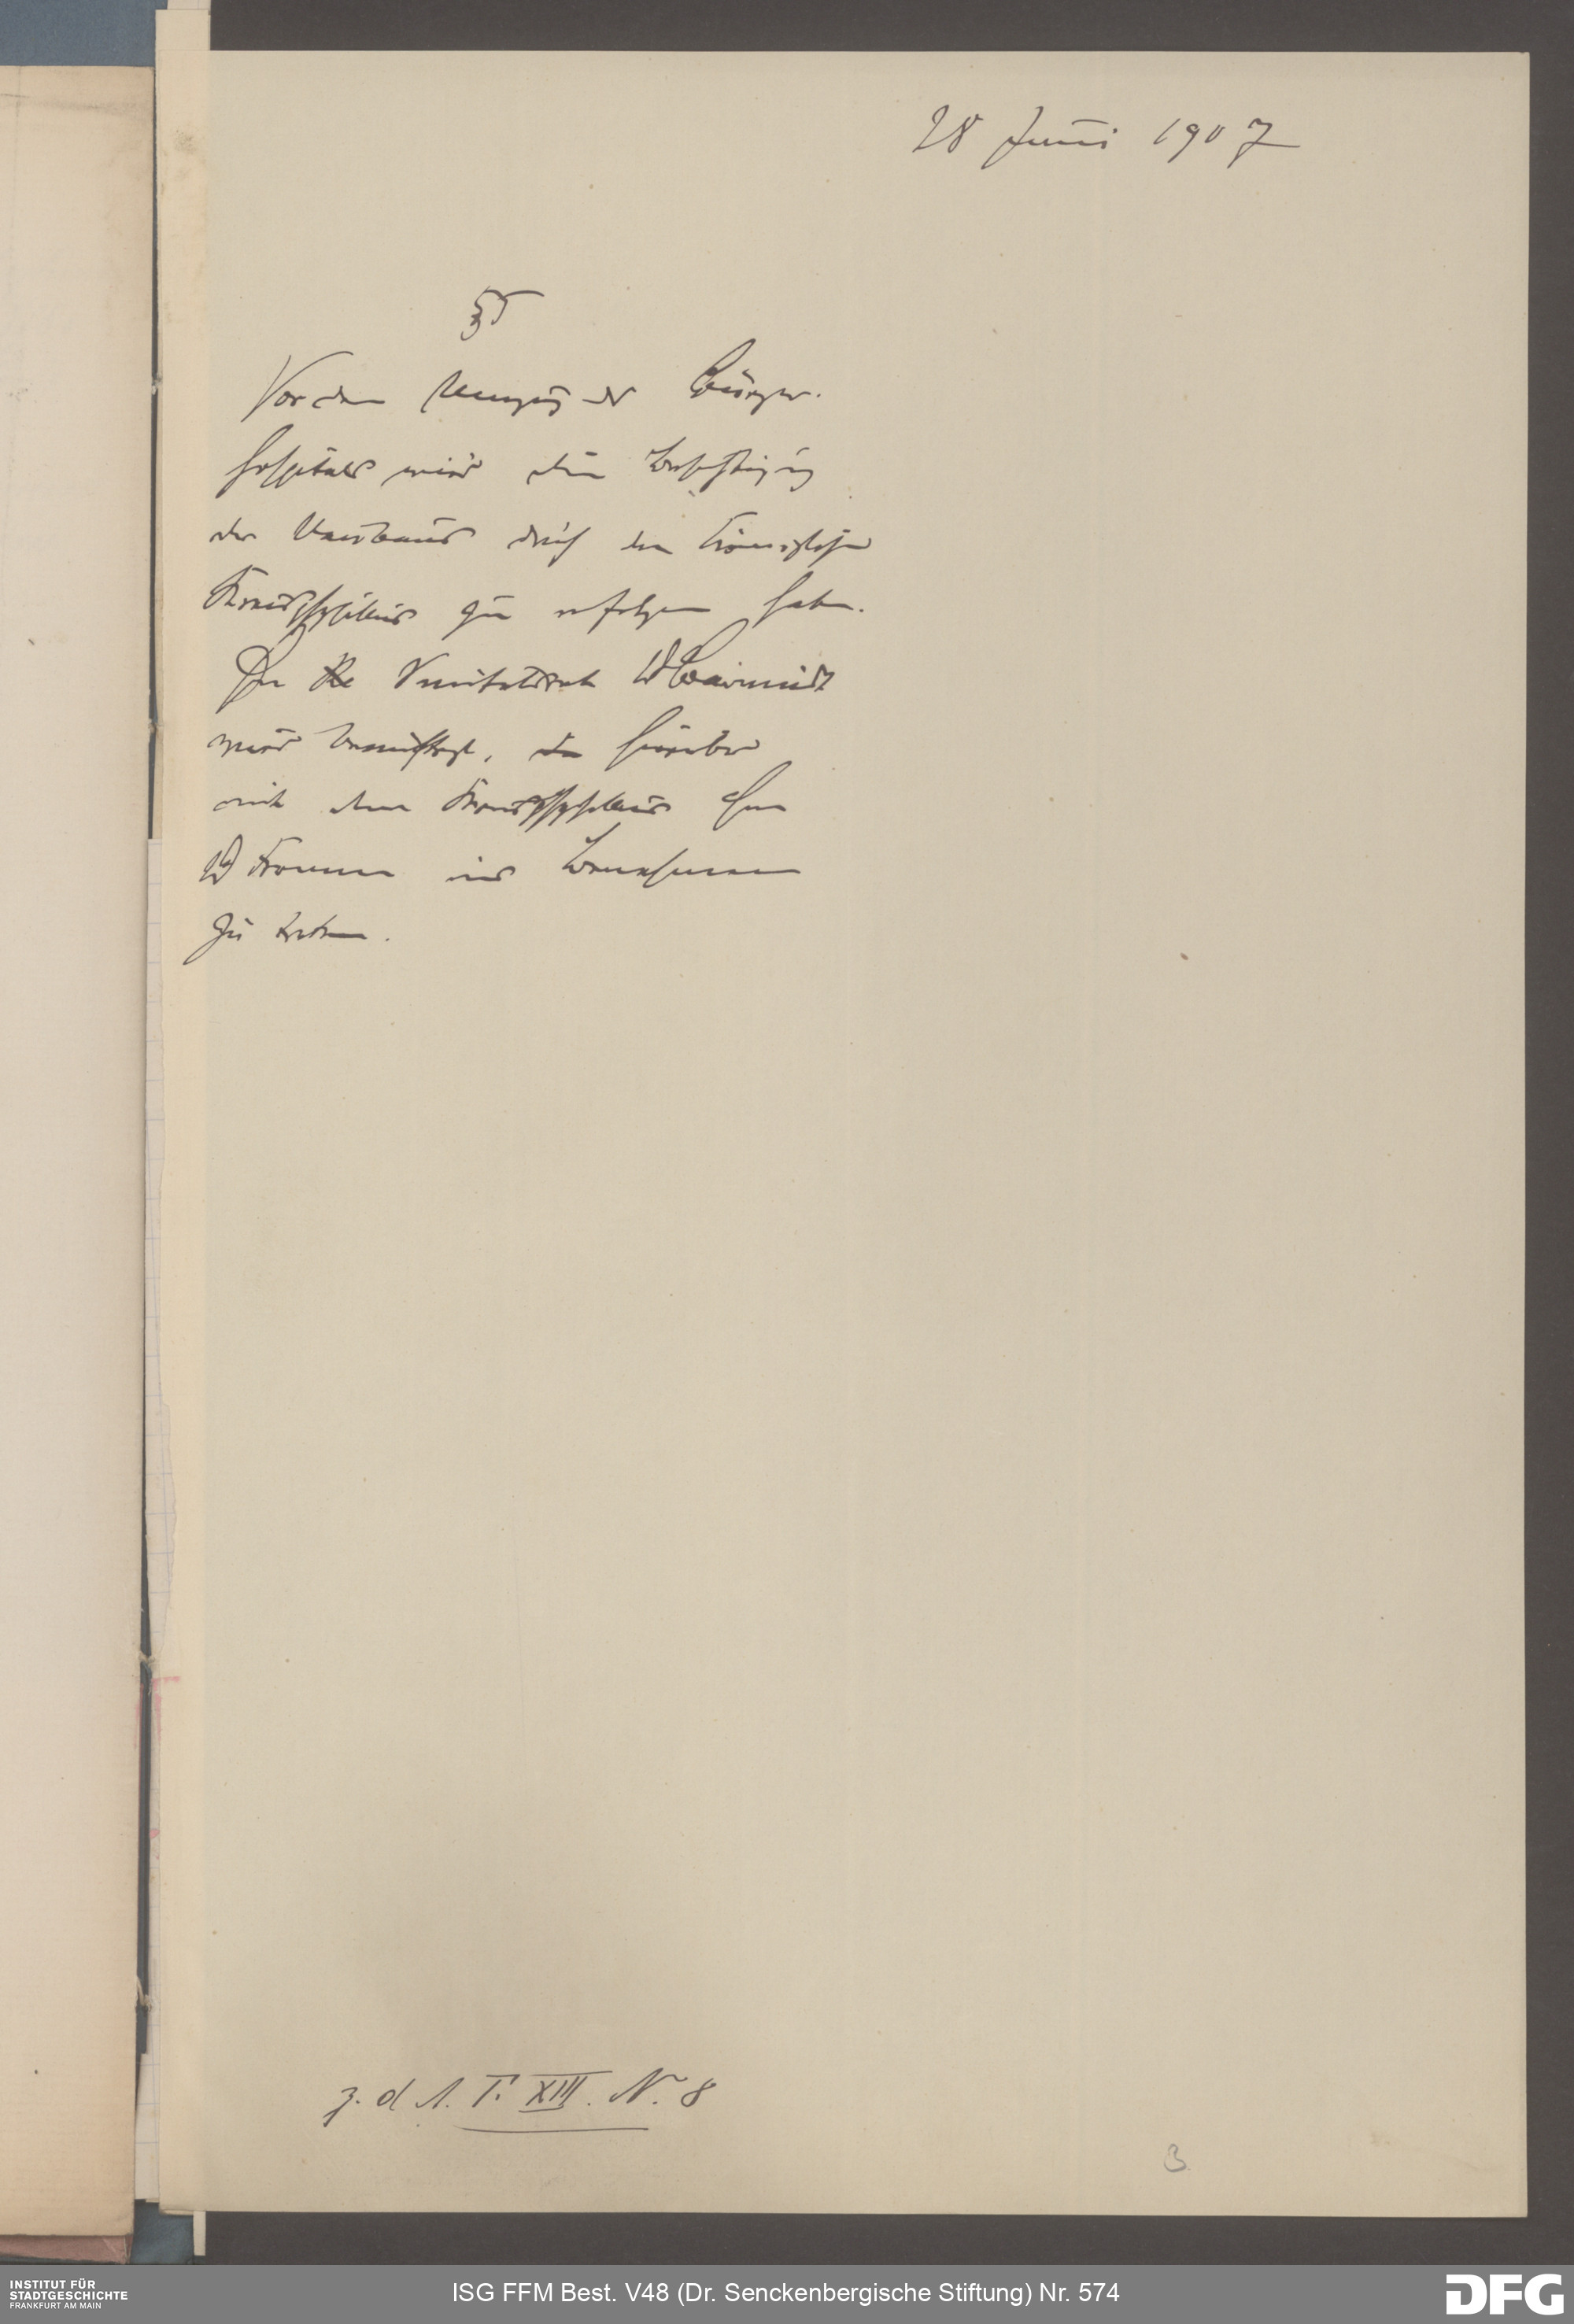 28 Juni 1907
§ 5
Vor dem Umzug des Bürger-
hospitals wird die Besichtigung
des Neubaus durch den Königlichen
Kreisphysikus zu erfolgen haben.
Der Sanitätsrat Dr
wird beauftragt, hierüber
mit dem Kreisphysikus Herrn
Dr Fromm ins Benehmen
zu treten.
z. d A. T. XIII. N. 8
3
INSTITUT FÜR
STADTGESCHICHTE
FRANKFURT AM MAIN
ISG FFM Best. V48 (Dr. Senckenbergische Stiftung) Nr. 574
DFG